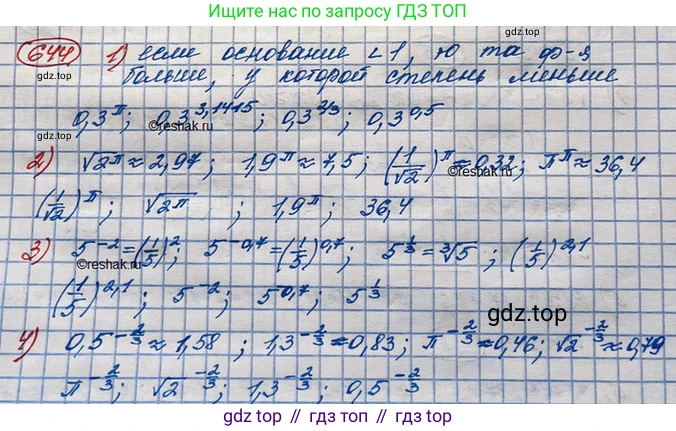 Ищите нас по запросу ГДЗ ТОП
644 1) если основание < 1, то та ф-я
больше, у которой степень меньше
0,3^π; 0,3^3,1415; 0,3^2/3; 0,3^0,5
©reshak.ru
2) √2^π ≈ 2,97; 1,9^π ≈ 7,5; (1/√2)^π ≈ 0,32; π^π ≈ 36,4
©reshak.ru
(1/√2)^π; √2^π; 1,9^π; 36,4
3) 5^-2 = (1/5)^2; 5^-0,7 = (1/5)^0,7; 5^1/3 = ∛5; (1/5)^2,1
©reshak.ru
(1/5)^2,1; 5^-2; 5^0,7; 5^1/3
gdz.top
4) 0,5^-2/3 ≈ 1,58; 1,3^-2/3 ≈ 0,83; π^-2/3 ≈ 0,46; √2^-2/3 ≈ 0,79
π^-2/3; √2^-2/3; 1,3^-2/3; 0,5^-2/3
gdz.top // гдз.топ // gdz.top